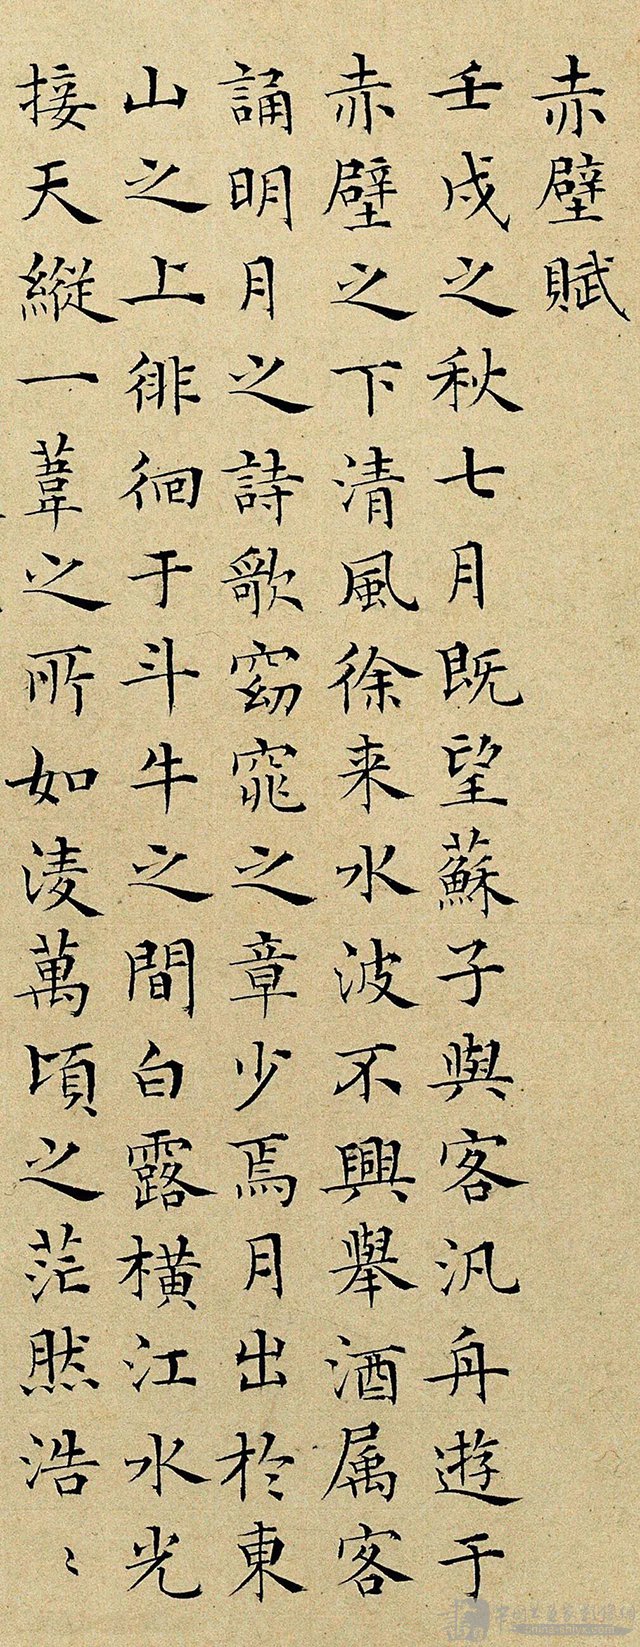 赤壁賦
壬戌之秋七月既望蘇子與客汎舟遊于
赤壁之下清風徐来水波不興舉酒属客
誦明月之詩歌窈窕之章少焉月出於東
山之上徘徊于斗牛之間白露横江水光
接天縱一葦之所如淩萬頃之茫然浩〻
china-shiyx.com